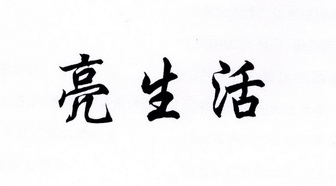 亮生活